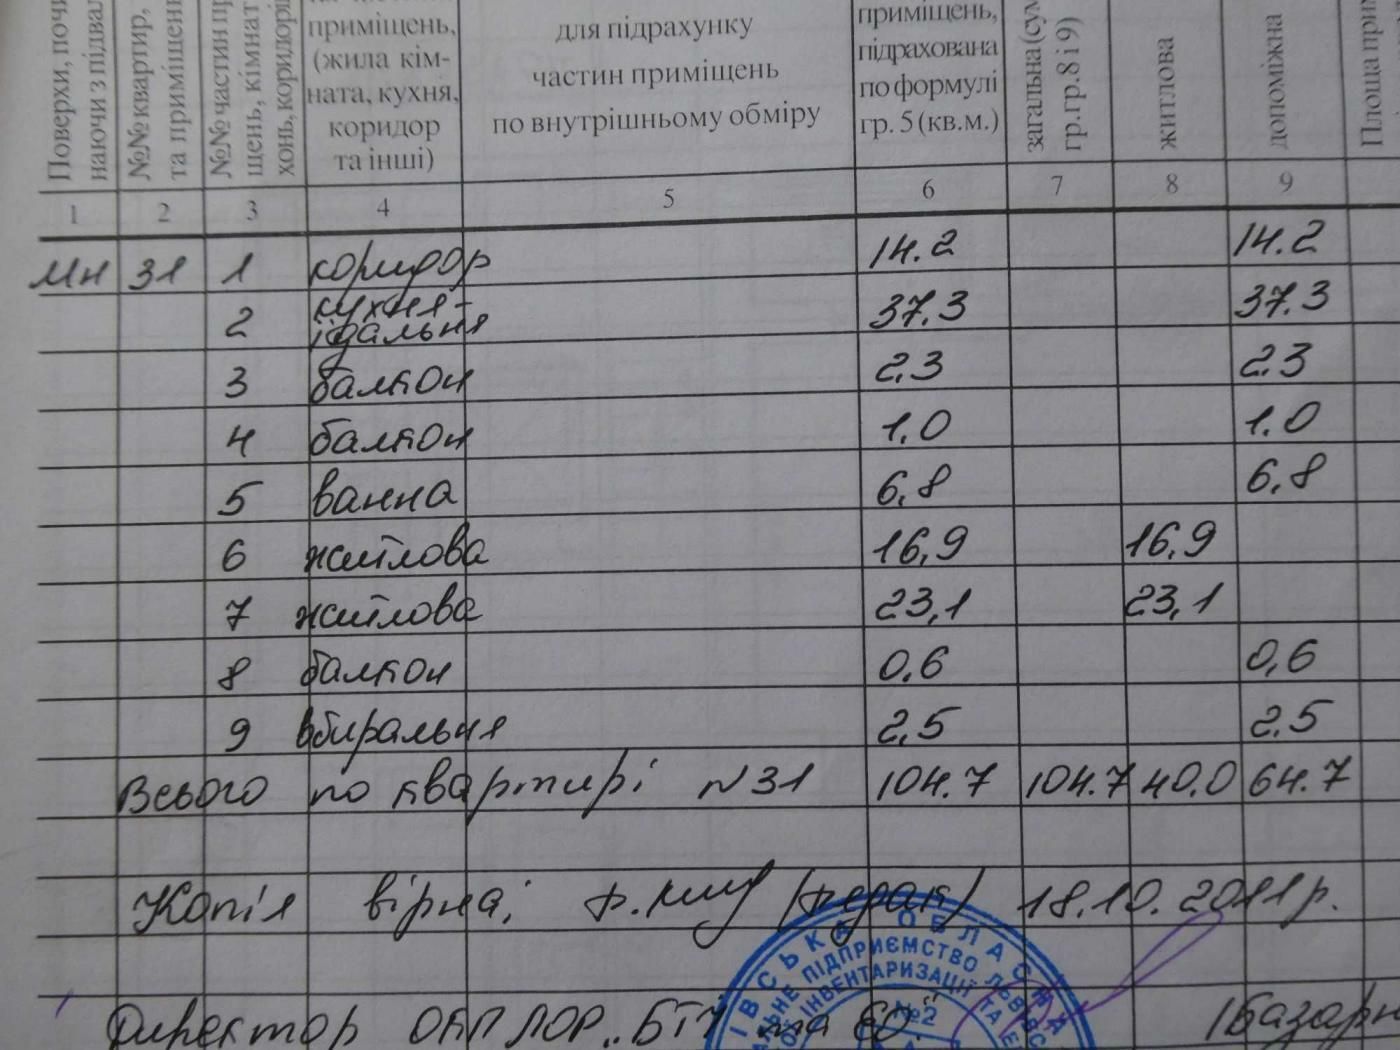 Поверхи, почи
наючи з підвал
№№ квартир,
та приміщень
№№ частин пр
щень, кімнат
хонь, коридор
приміщень,
(жила кім-
ната, кухня,
коридор
та інші)
для підрахунку
частин приміщень
по внутрішньому обміру
приміщень,
підрахована
по формулі
гр. 5 (кв.м.)
загальна (сум
гр.гр. 8 і 9)
житлова
допоміжна
Площа прим
1 2 3 4 5 6 7 8 9
Мн 31 1 коридор 14.2 14.2
2 кухня-їдальня 37.3 37.3
3 балкон 2.3 2.3
4 балкон 1.0 1.0
5 ванна 6,8 6,8
6 житлова 16,9 16,9
7 житлова 23,1 23,1
8 балкон 0,6 0,6
9 вбиральня 2,5 2.5
Всього по квартирі N31 104.7 104.7 40.0 64.7
Копія вірна: 18.10.2011р.
ІВСЬКА ОБЛАСНА
АЛЬНЕ ПІДПРИЄМСТВО ЛЬВІВС
ІНВЕНТАРИЗАЦІЇ ТА Е
№2
Директор ОКП ЛОР „БТІ та ЕО"